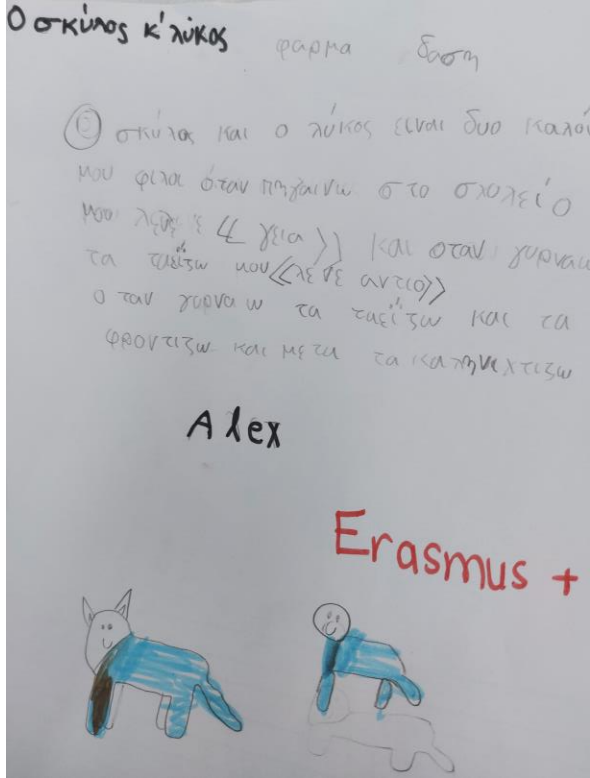 Ο σκύλος κ' λύκος φαρμα δαση
Ο σκύλος και ο λύκος ειναι δυο καλοί
μου φιλοι όταν πηγαινω στο σχολείο
μου λένε «γεια» και οταν γυρναω
τα ταείζω μου «λένε αντιο»
οταν γυρναω τα ταείζω και τα
φροντιζω και μετα τα καληνυχτιζω
Alex
Erasmus +